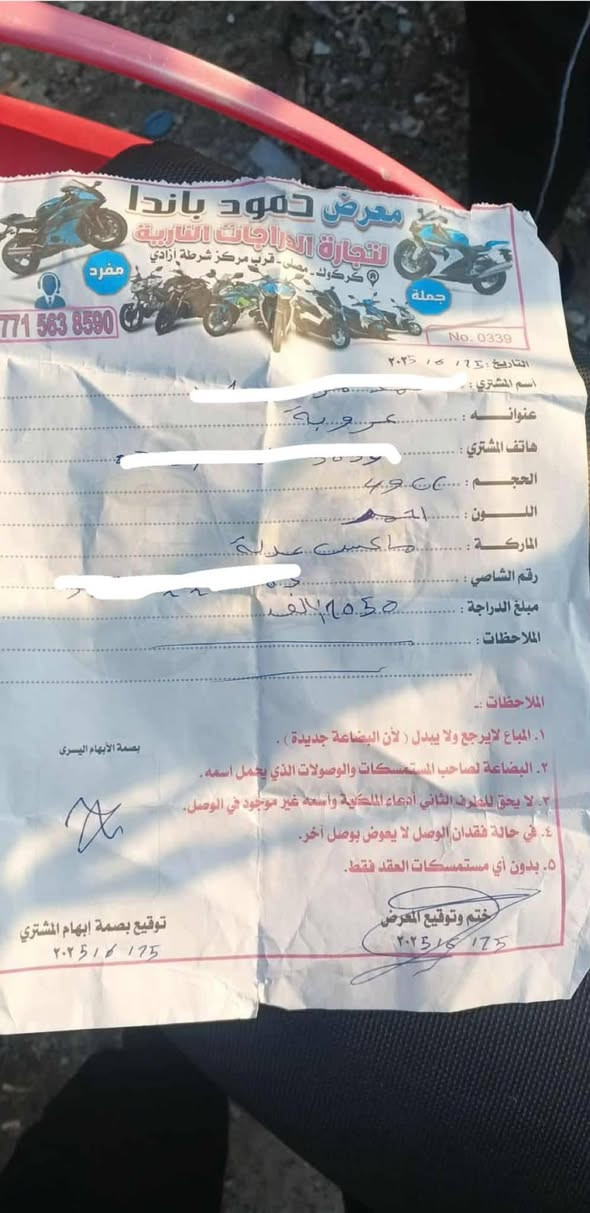 معرض حمود باندا
لتجارة الدراجات النارية
كركوك - مصلى - قرب مركز شرطة ازادي
مفرد
جملة
771 563 8590
No. 0339
التاريخ: ٢٥ / ٦ / ٢٠٢5
اسم المشتري:
عنوانه: عروبة
هاتف المشتري:
الحجم: 49 CC
اللون: احمر
الماركة:
رقم الشاصي:
مبلغ الدراجة: الف
الملاحظات:
الملاحظات:-
١. المباع لايرجع ولا يبدل (لأن البضاعة جديدة).
٢. البضاعة لصاحب المستمسكات والوصولات الذي يحمل اسمه.
٣. لا يحق للطرف الثاني أدعاء الملكية وأسمه غير موجود في الوصل.
٤. في حالة فقدان الوصل لا يعوض بوصل أخر.
٥. بدون أي مستمسكات العقد فقط.
بصمة الأبهام اليسرى
ختم وتوقيع المعرض
٢٥ / ٦ / ٢٠٢5
توقيع بصمة إبهام المشتري
٢٥ / ٦ / ٢٠٢5